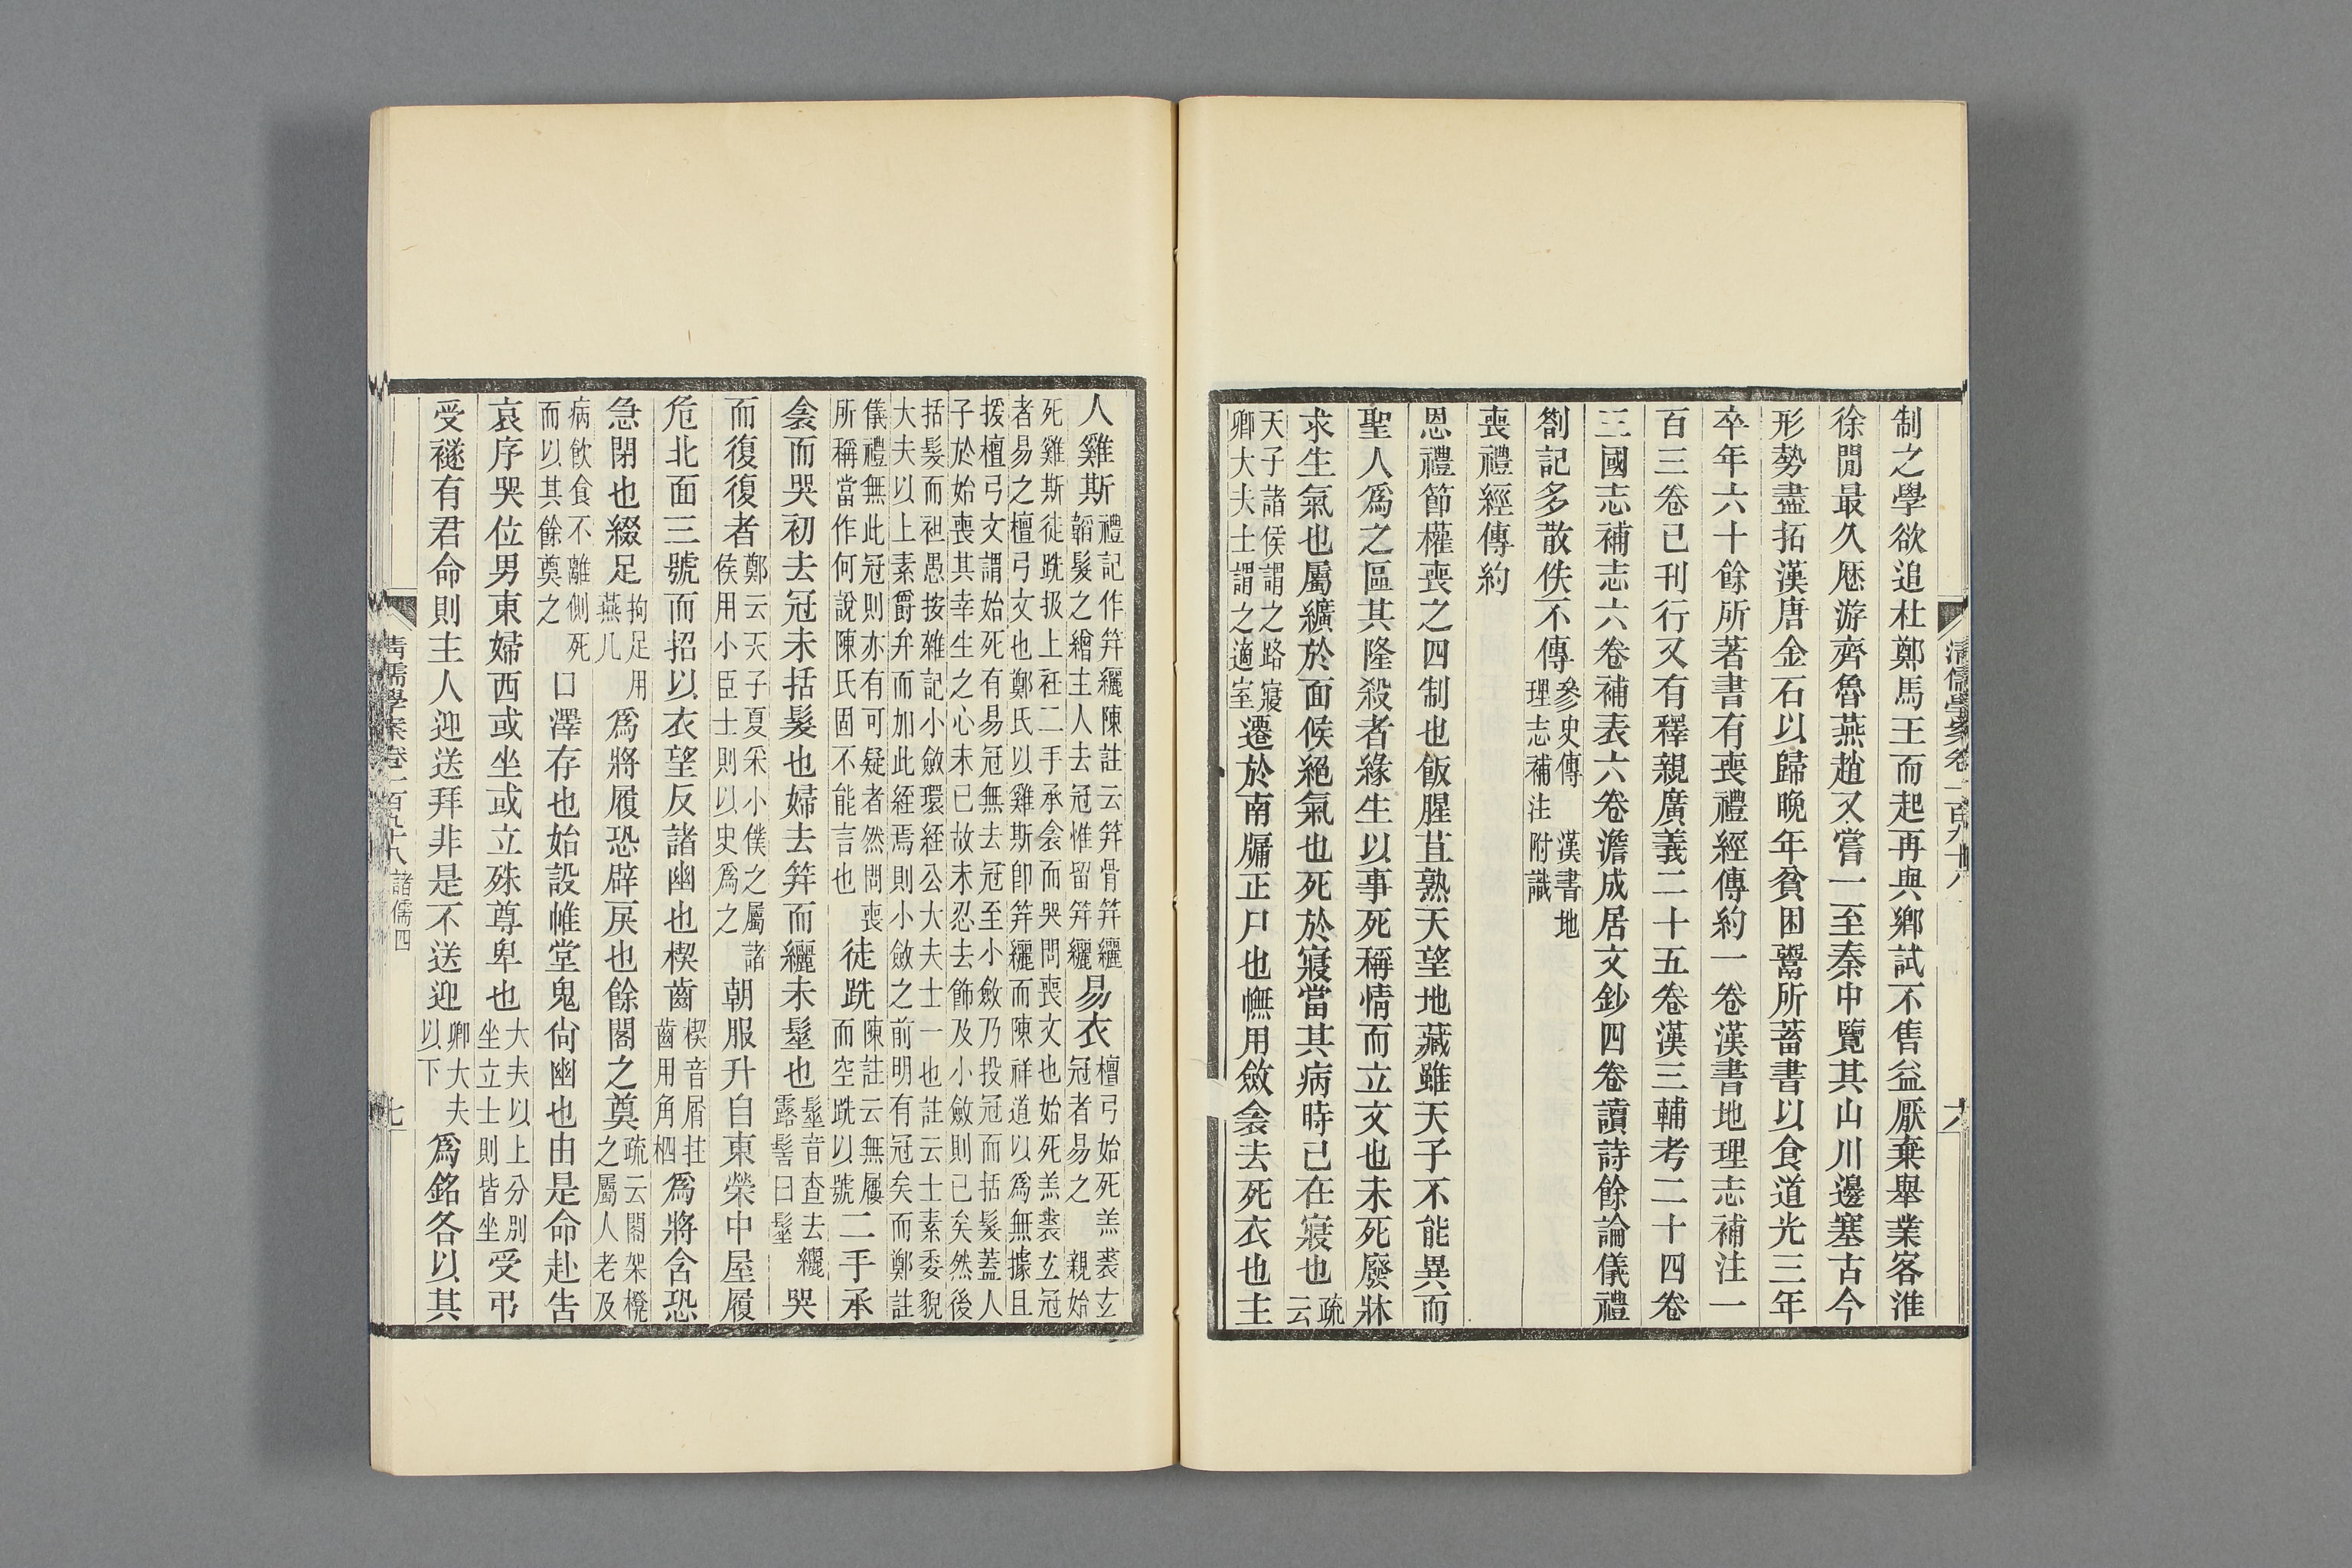 制之學欲追杜鄭馬王而起再與鄉試不售益厭棄舉業客淮
徐閒最久歷游齊魯燕趙又嘗一至秦中覽其山川邊塞古今
形勢盡拓漢唐金石以歸晚年貧困鬻所蓄書以食道光三年
卒年六十餘所著書有喪禮經傳約一卷漢書地理志補注一
百三卷已刊行又有釋親廣義二十五卷漢三輔考二十四卷
三國志補志六卷補表六卷澹成居文鈔四卷讀詩餘論儀禮
劄記多散佚不傳參史傳 漢書地理志補注附識
喪禮經傳約
恩禮節權喪之四制也飯腥苴熟天望地藏雖天子不能異而
聖人爲之區其隆殺者緣生以事死稱情而立文也未死廢牀
求生氣也屬纊於面候絕氣也死於寢當其病時已在寢也疏云
天子諸侯謂之路寢卿大夫士謂之適室遷於南牖正尸也幠用斂衾去死衣也主
清儒學案卷二百九十八 六
人雞斯禮記作笄纚陳註云笄骨笄纚韜髮之繒主人去冠惟留笄纚易衣檀弓始死羔裘玄冠者易之 親始
死雞斯徒跣扱上衽二手承衾而哭問喪文也始死羔裘玄冠者易之檀弓文也鄭氏以雞斯卽笄纚而陳祥道以爲無據且
援檀弓文謂始死有易冠無去冠至小斂乃投冠而括髮蓋人子於始喪其幸生之心未已故未忍去飾及小斂則已矣然後
括髮而袒愚按雜記小斂環絰公大夫士一也註云士素委貌大夫以上素爵弁而加此絰焉則小斂之前明有冠矣而鄭註
儀禮無此冠則亦有可疑者然問喪所稱當作何說陳氏固不能言也徒跣陳註云無屨而空跣以號二手承
衾而哭初去冠未括髮也婦去笄而纚未髽也髽音查去纚露髻曰髽哭
而復復者鄭云天子夏采小僕之屬諸侯用小臣士則以史爲之朝服升自東榮中屋履
危北面三號而招以衣望反諸幽也楔齒楔音屑拄齒用角柶爲將含恐
急閉也綴足拘足用燕几爲將履恐辟戾也餘閣之奠疏云閣架櫈之屬人老及
病飮食不離側死而以其餘奠之口澤存也始設帷堂鬼尙幽也由是命赴告
哀序哭位男東婦西或坐或立殊尊卑也大夫以上分別坐立士則皆坐受弔
受襚有君命則主人迎送拜非是不送迎卿大夫以下爲銘各以其
清儒學案卷二百九十八 諸儒四 七